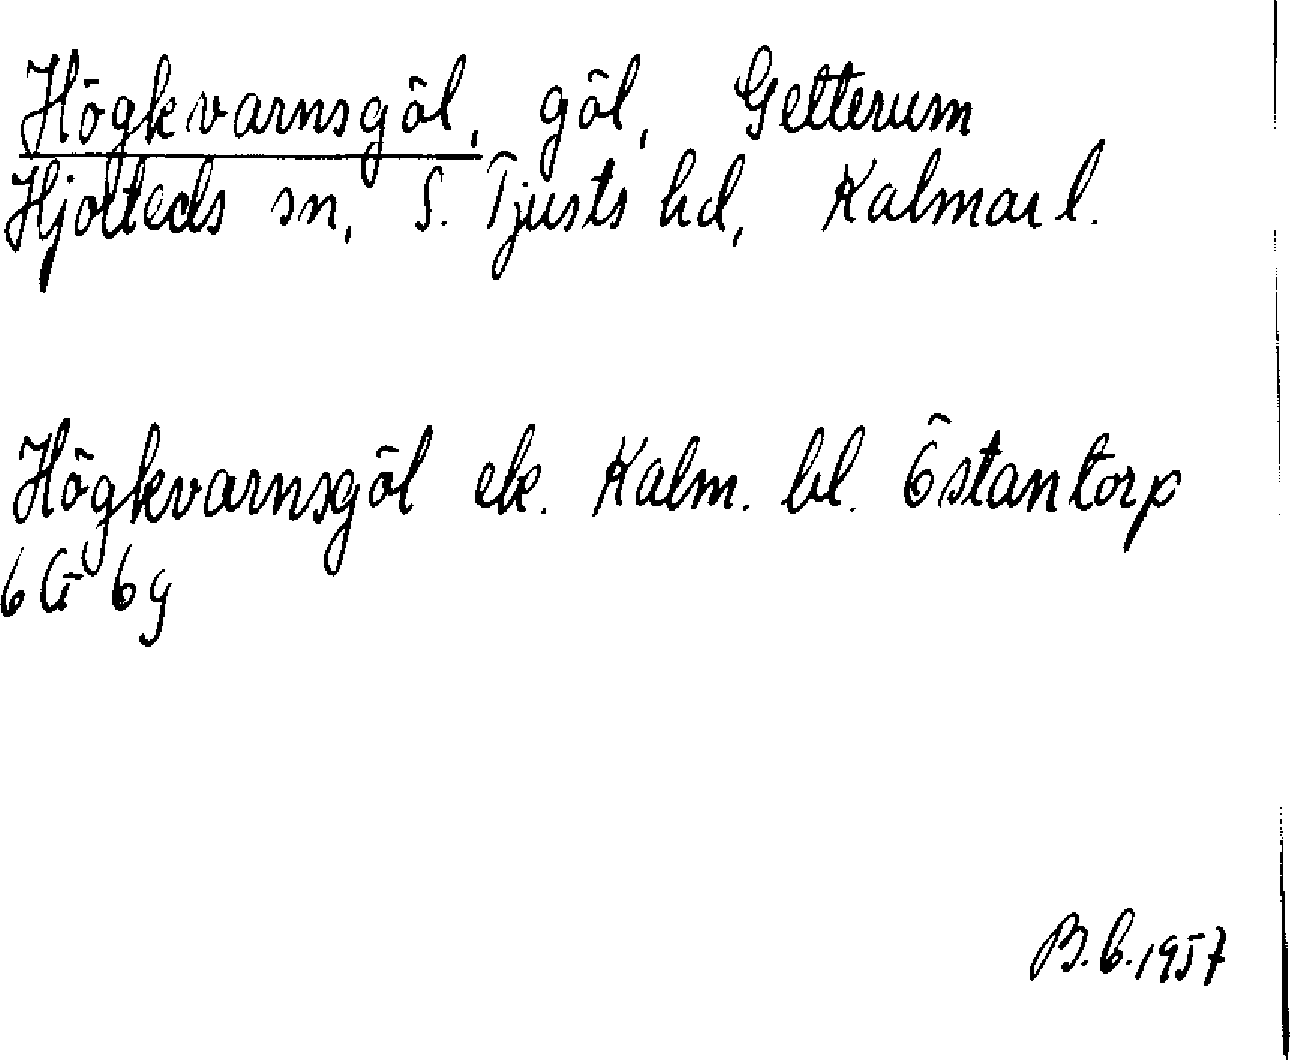 Högkvarnsgöl, göl, Getterum
Hjorteds sn, S. Tjusts hd, Kalmar l.
Högkvarnsgöl ek. Kalm. bl. Östantorp
6G 6g
B.C. 1957